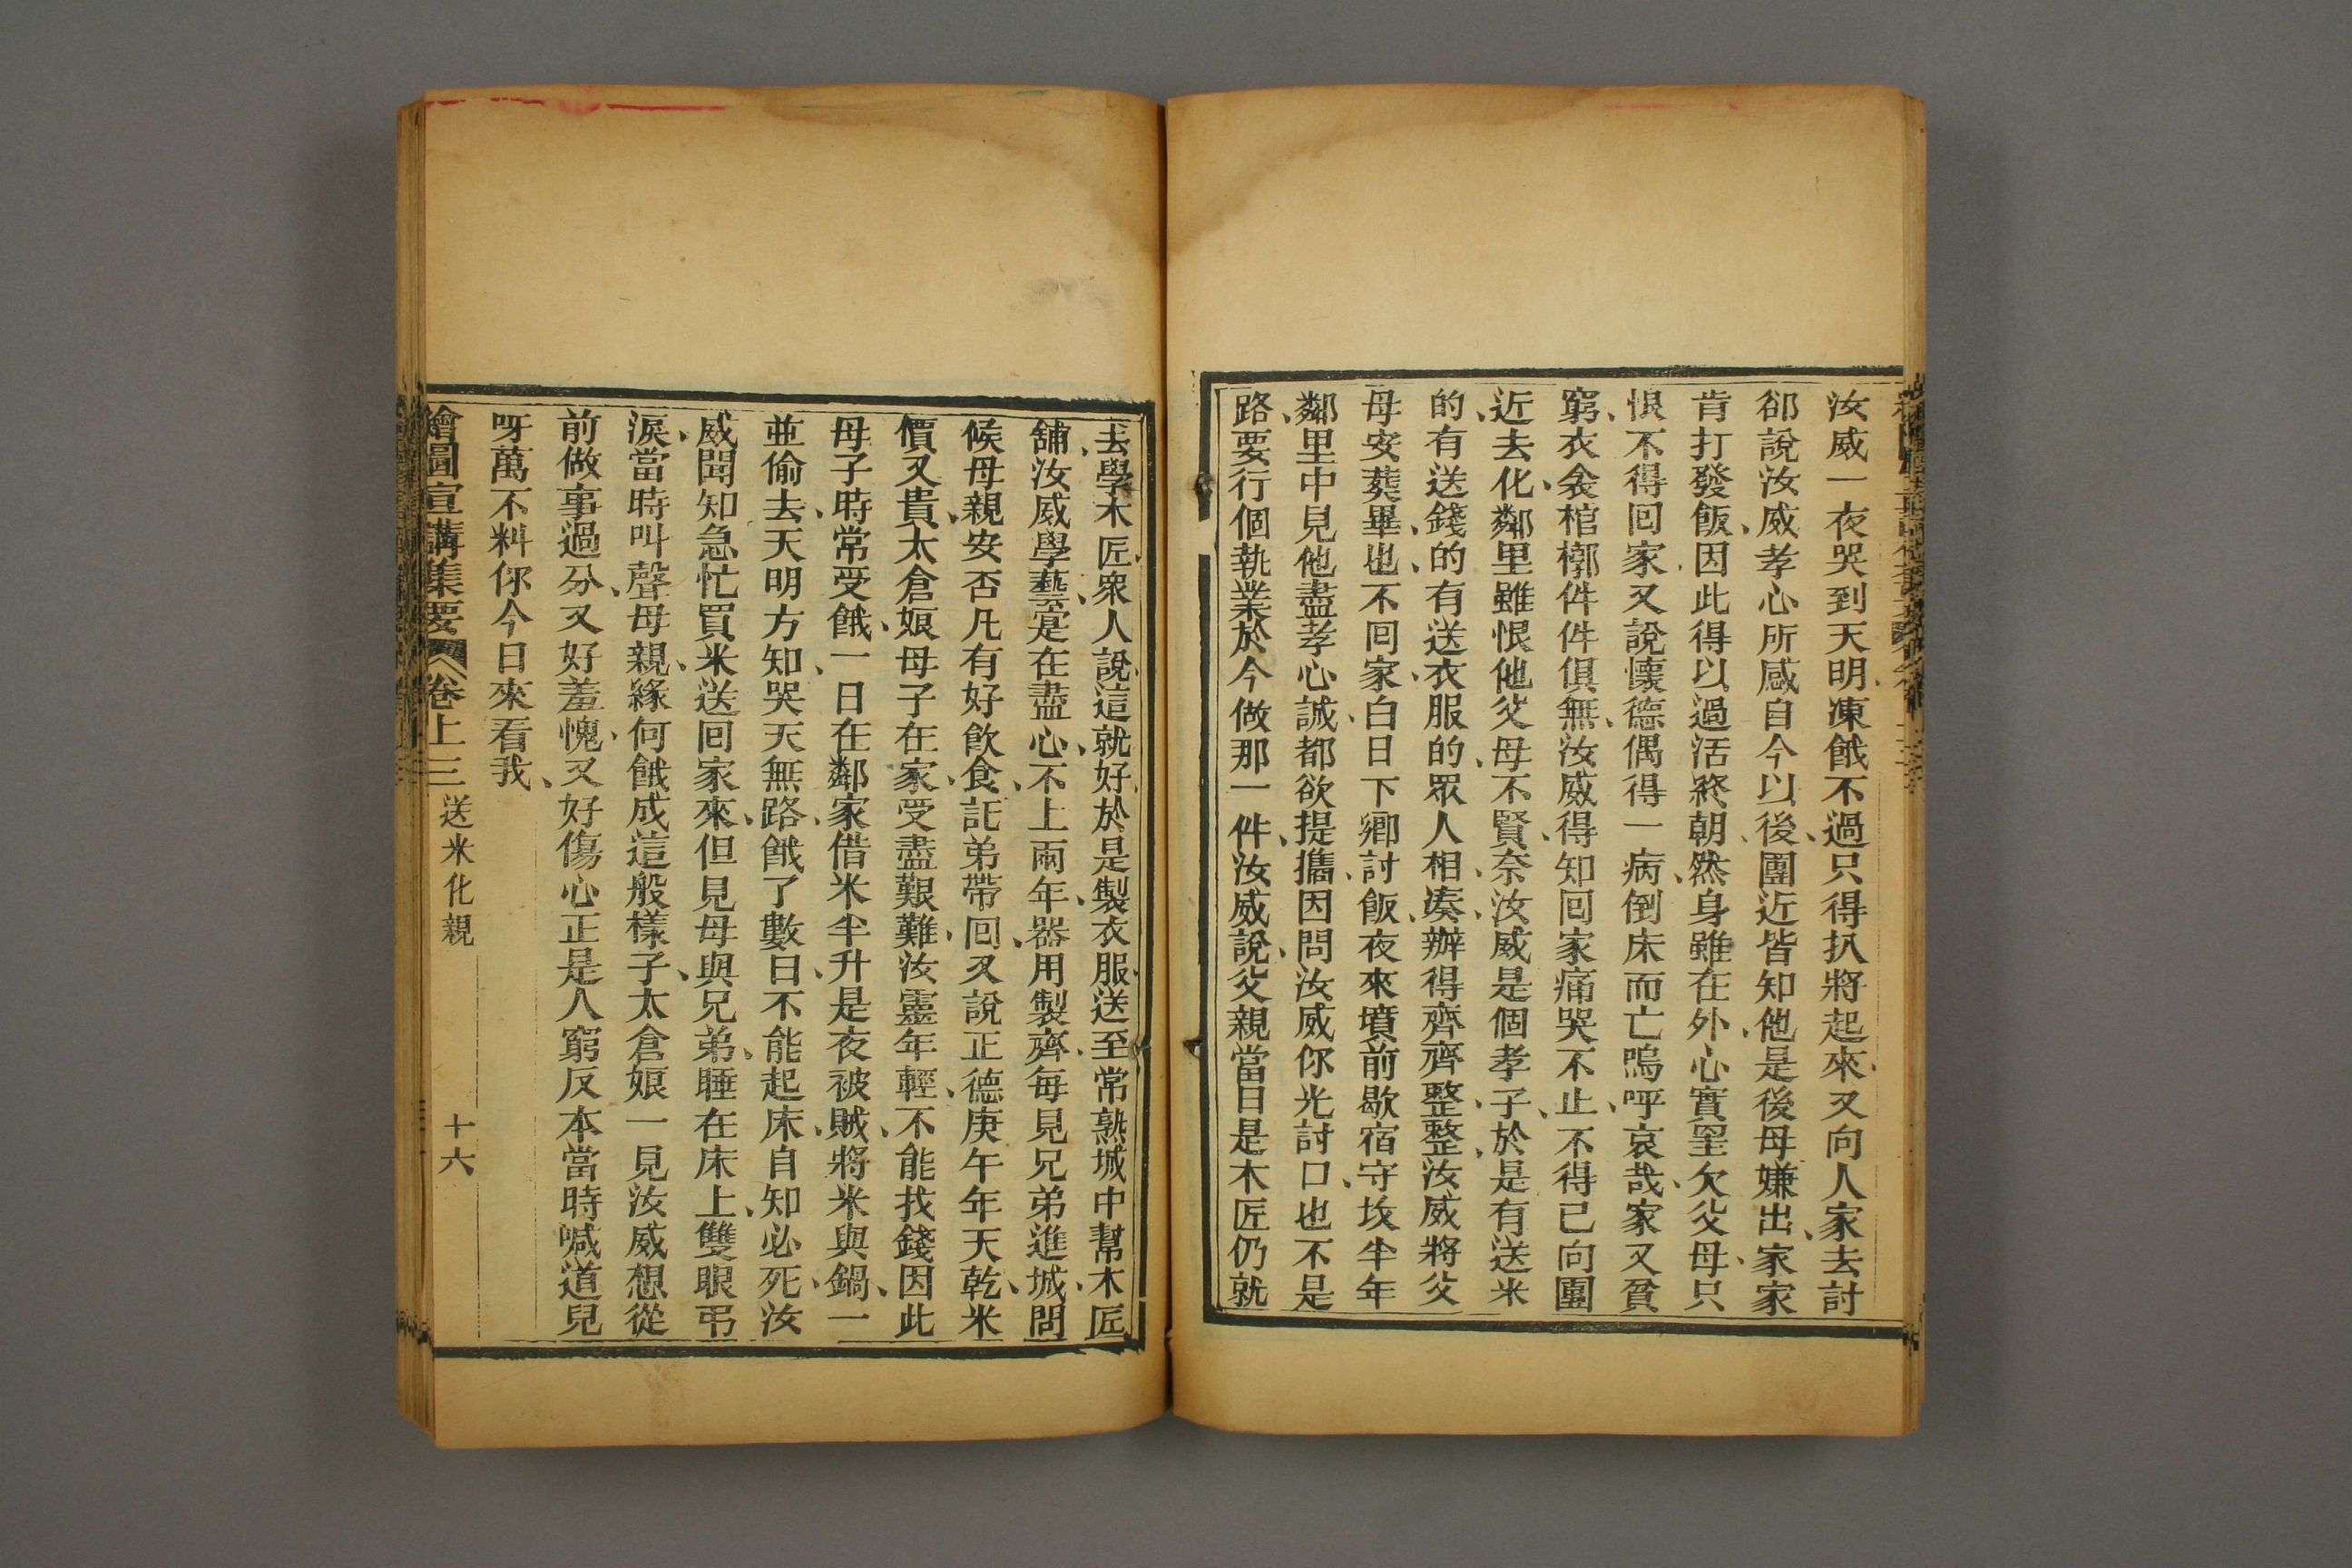 汝威一夜哭到天明、凍餓不過、只得扒將起來、又向人家去討
郤說汝威孝心所感自今以後、團近皆知他是後母嫌出、家家
肯打發飯、因此得以過活終朝、然身雖在外、心實罣欠父母、只
恨不得回家又說懷德偶得一病、倒床而亡嗚呼哀哉、家又貧
窮、衣衾棺槨件件俱無、汝威得知回家痛哭不止、不得已向團
近去化、鄰里雖恨他父母不賢、奈汝威是個孝子、於是有送米
的、有送錢的、有送衣服的、眾人相湊、辦得齊齊整整、汝威將父
母安葬畢也、不回家、白日下鄉討飯、夜來墳前歇宿守坟半年
鄰里中見他盡孝心誠、都欲提攜、因問汝威你光討口、也不是
路、要行個執業於今做那一件、汝威說、父親當日是木匠仍就
去學木匠、衆人說這就好、於是製衣服、送至常熟城中幫木匠
舖、汝威學藝、寔在盡心、不上兩年、器用製齊、每見兄弟進城、問
候母親安否凡有好飲食、託弟帶回、又說正德庚午年天乾、米
價又貴、太倉娘母子在家、受盡艱難、汝靈年輕、不能找錢因此
母子時常受餓、一日在鄰家借米半升是夜被賊、將米與鍋、一
並偷去、天明方知、哭天無路、餓了數日、不能起床、自知必死、汝
威聞知急忙買米送回家來、但見母與兄弟、睡在床上、雙眼弔
淚、當時叫聲母親、緣何餓成這般樣子、太倉娘一見汝威想從
前做事過分、又好羞愧、又好傷心正是人窮反本當時喊道兒
呀萬不料你今日來看我、
繪圖宣講集要 卷上三 送米化親 十六